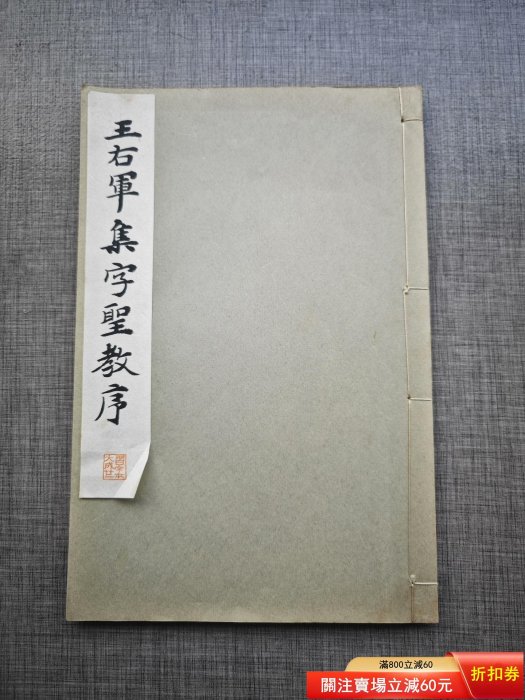 王右軍集字聖教序
滿800立減60
關注賣場立減60元
折扣券